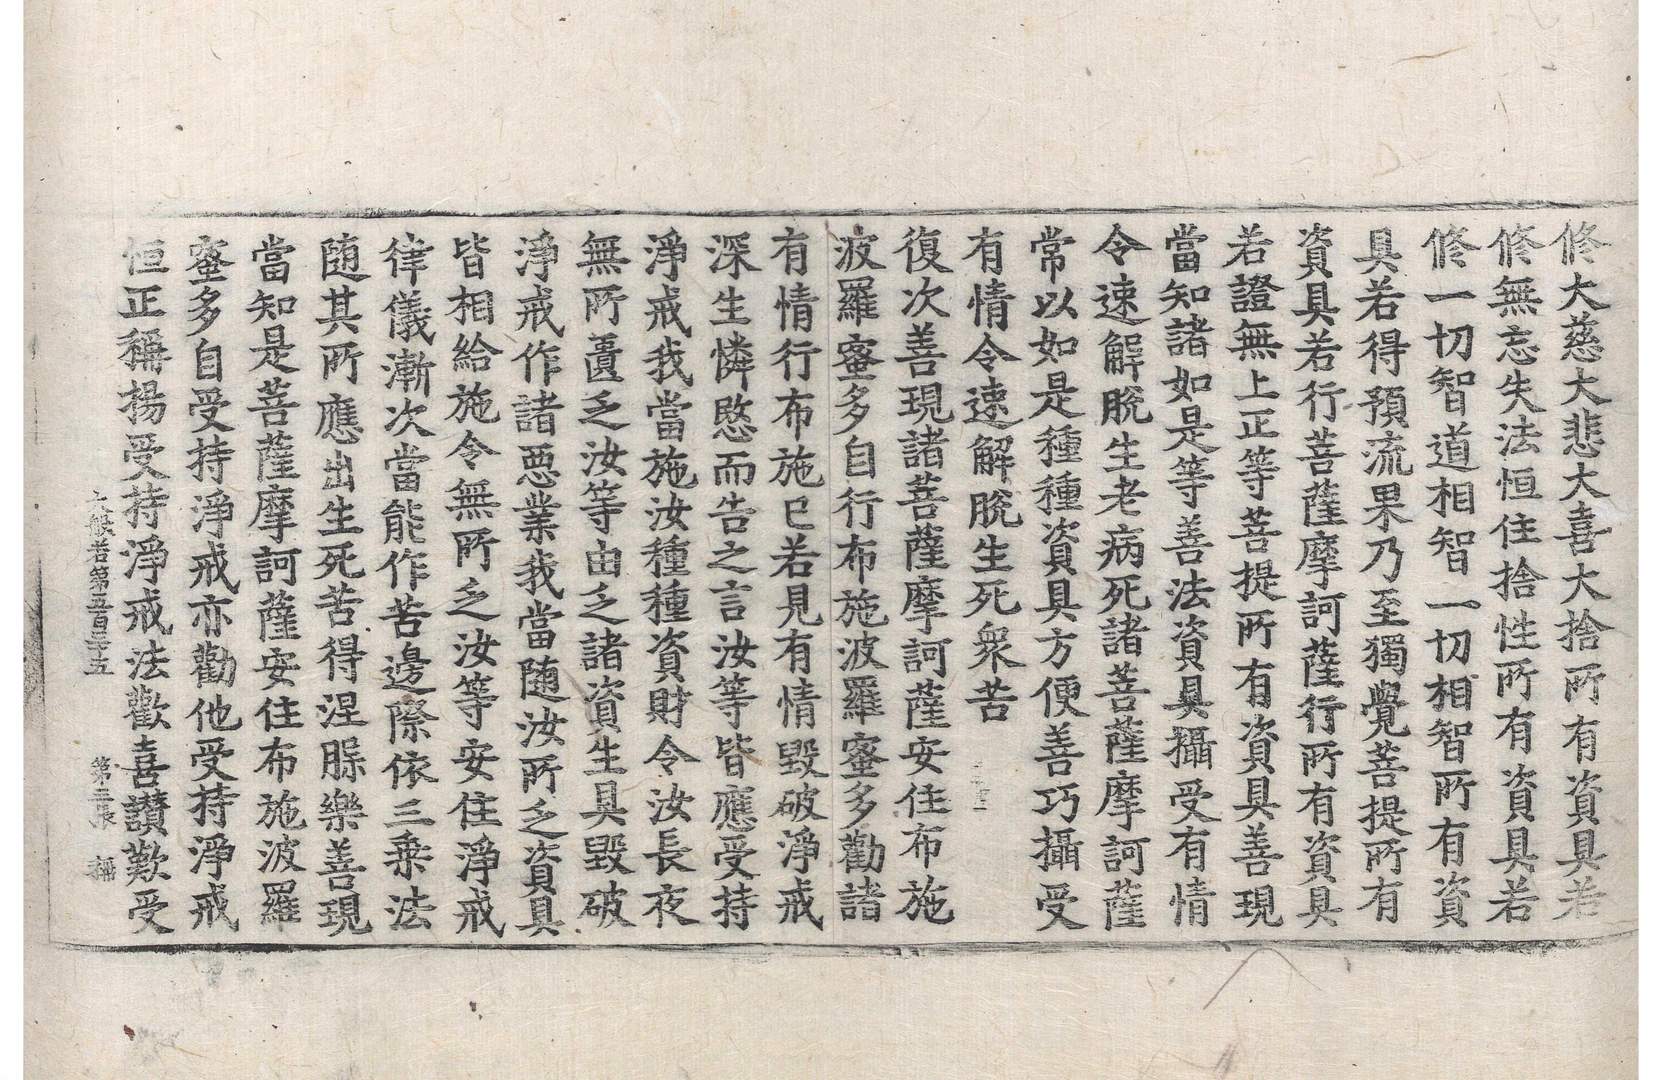 修大慈大悲大喜大捨所有資具若
修無忘失法恒住捨性所有資具若
修一切智道相智一切相智所有資
具若得預流果乃至獨覺菩提所有
資具若行菩薩摩訶薩行所有資具
若證無上正等菩提所有資具善現
當知諸如是等善法資具攝受有情
令速解脫生老病死諸菩薩摩訶薩
常以如是種種資具方便善巧攝受
有情令速解脫生死衆苦
復次善現諸菩薩摩訶薩安住布施
波羅蜜多自行布施波羅蜜多勸諸
有情行布施已若見有情毀破淨戒
深生憐愍而告之言汝等皆應受持
淨戒我當施汝種種資財令汝長夜
無所匱乏汝等由乏諸資生具毀破
淨戒作諸惡業我當随汝所乏資具
皆相給施令無所乏汝等安住淨戒
律儀漸次當能作苦邊際依三乘法
随其所應出生死苦得涅槃樂善現
當知是菩薩摩訶薩安住布施波羅
蜜多自受持淨戒亦勸他受持淨戒
恒正稱揚受持淨戒法歡喜讃歎受
大般若第五百三十五 第二張